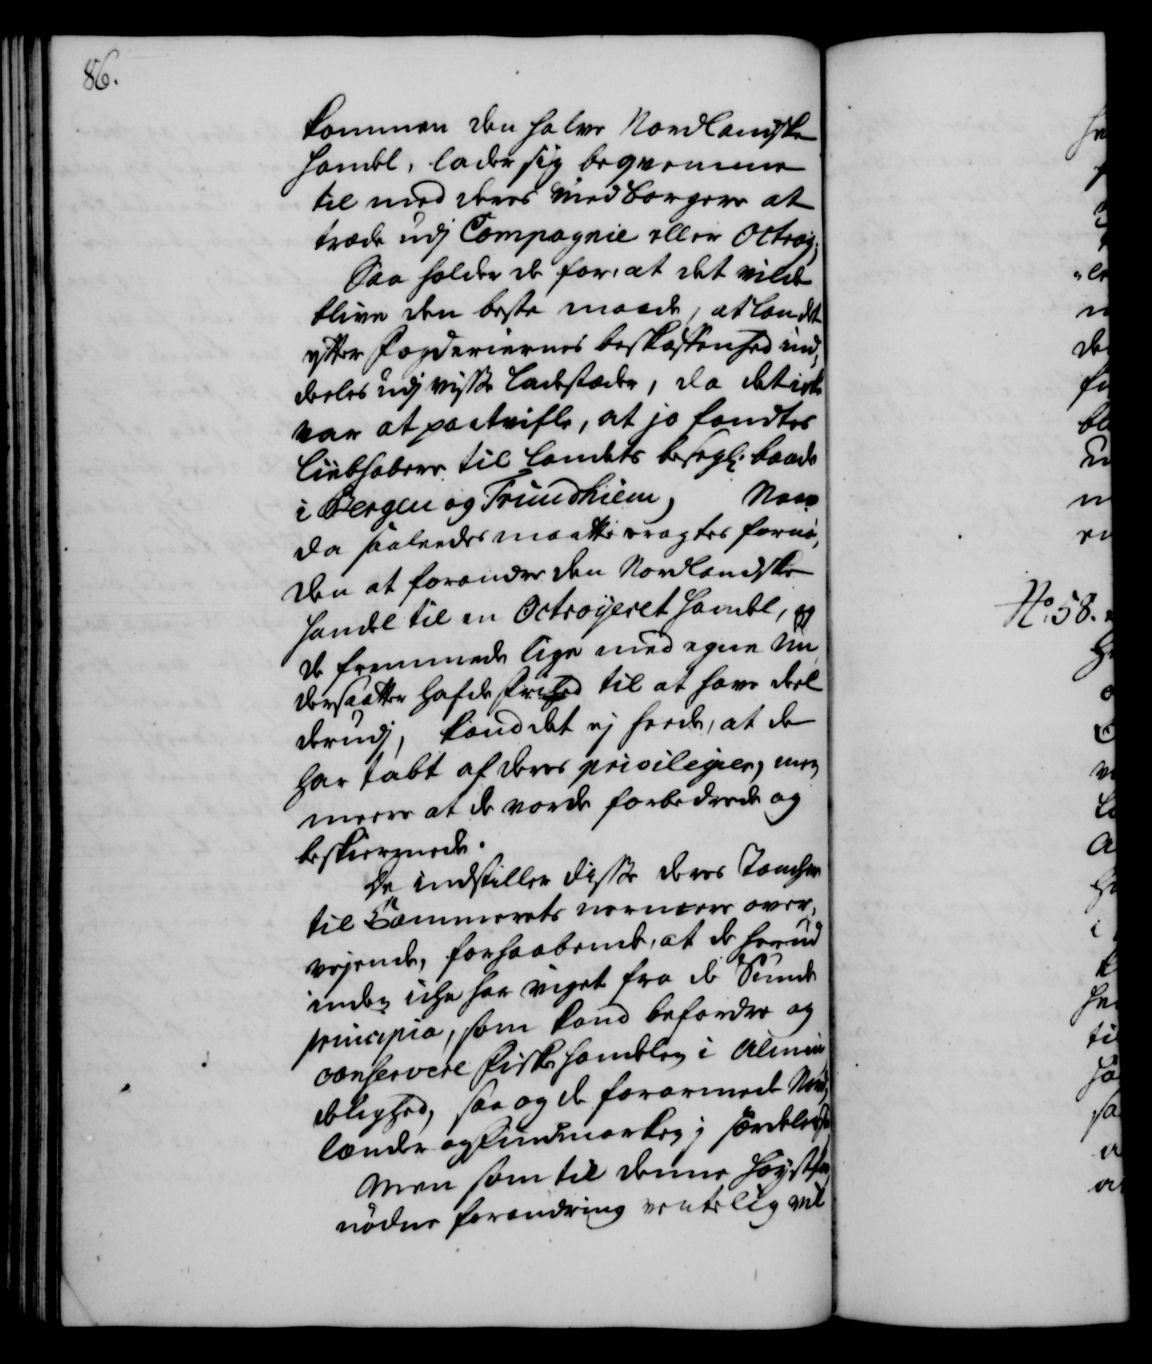 86.
kommen den halve Nordlandske
Handel, lader sig beqvemme
til med deres Medborgere at
træde udj Compagnie eller Octroy;
Saa holder de for, at det vilde
blive den beste maade, at landet
efter Fogderiernes beskaffenhed ind,
deeles udj visse Ladestæder, da det icke
var at paatvifle, at jo fandtes
Liebhabere til Landets besegl: baade
i Bergen og Trundhiem, Naar
da saaledes maatte eragtes fornö,
den at forandre den Nordlandske
Handel til en Octroyeret Handel, og
de fremmede lige med egne Un
dersaatter hafde frihed til at have deel
derudj, kand det ej heede, at de
har tabt af deres privilegier, men
meere at de vorde forbedrede og
beskiermede.
De indstiller disse deres Tancher
til Cammerets nermere over,
vejende, forhaabende, at de herud
inden iche har viget fra de Sunde
principia, som kand befordre og
conservere Fiskehandelen i Almin
delighed, saa og de forarmede Nord,
lander og Findmarken j særdeleshed
Men som til denne höyst for
nödne forandring ventelig vil
No: 58.